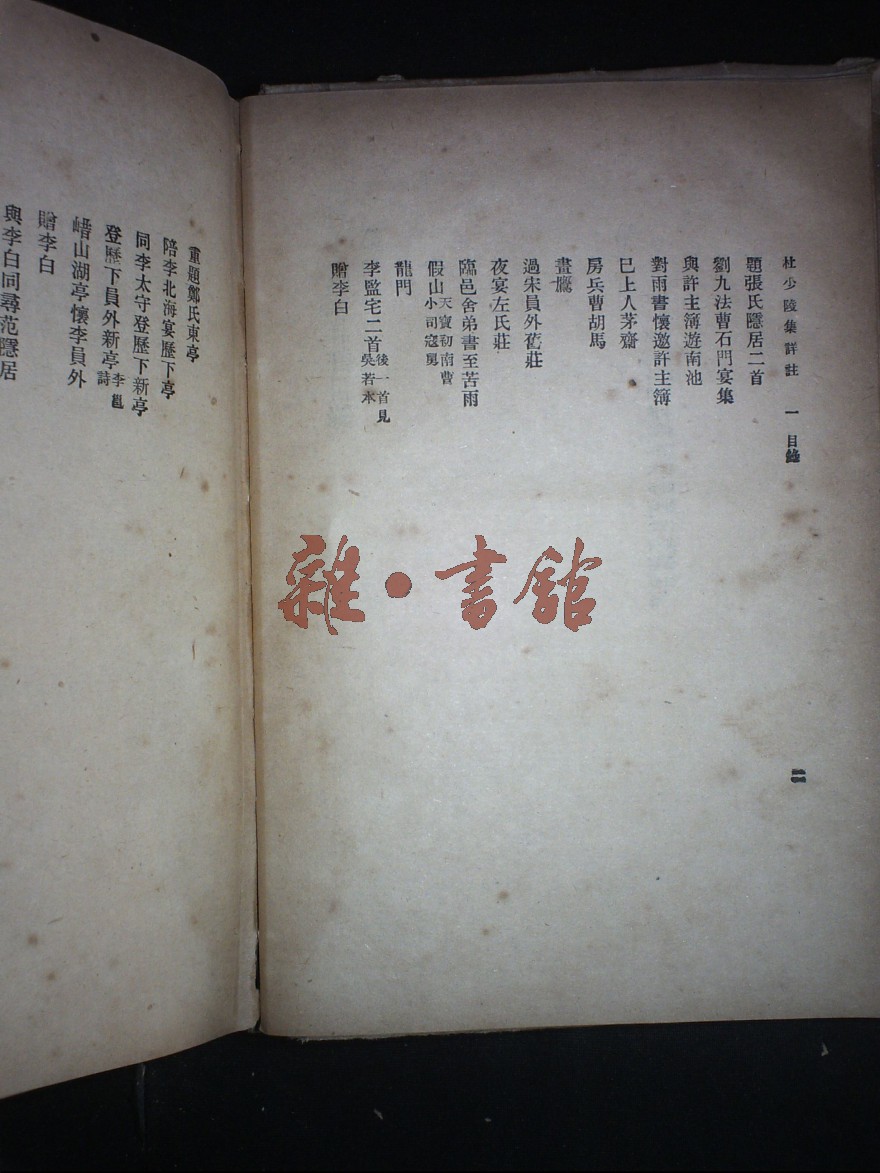 杜少陵集詳註 一 目錄
二
題張氏隱居二首
劉九法曹石門宴集
與許主簿遊南池
對雨書懷邀許主簿
巳上人茅齋
房兵曹胡馬
畫鷹
過宋員外舊莊
夜宴左氏莊
臨邑舍弟書至苦雨
假山天寶初南曹小司寇舅
龍門
李監宅二首後一首見吳若本
贈李白
重題鄭氏東亭
陪李北海宴歷下亭
同李太守登歷下新亭
登歷下員外新亭李邕詩
㟙山湖亭懷李員外
贈李白
與李白同尋范隱居
雜·書館